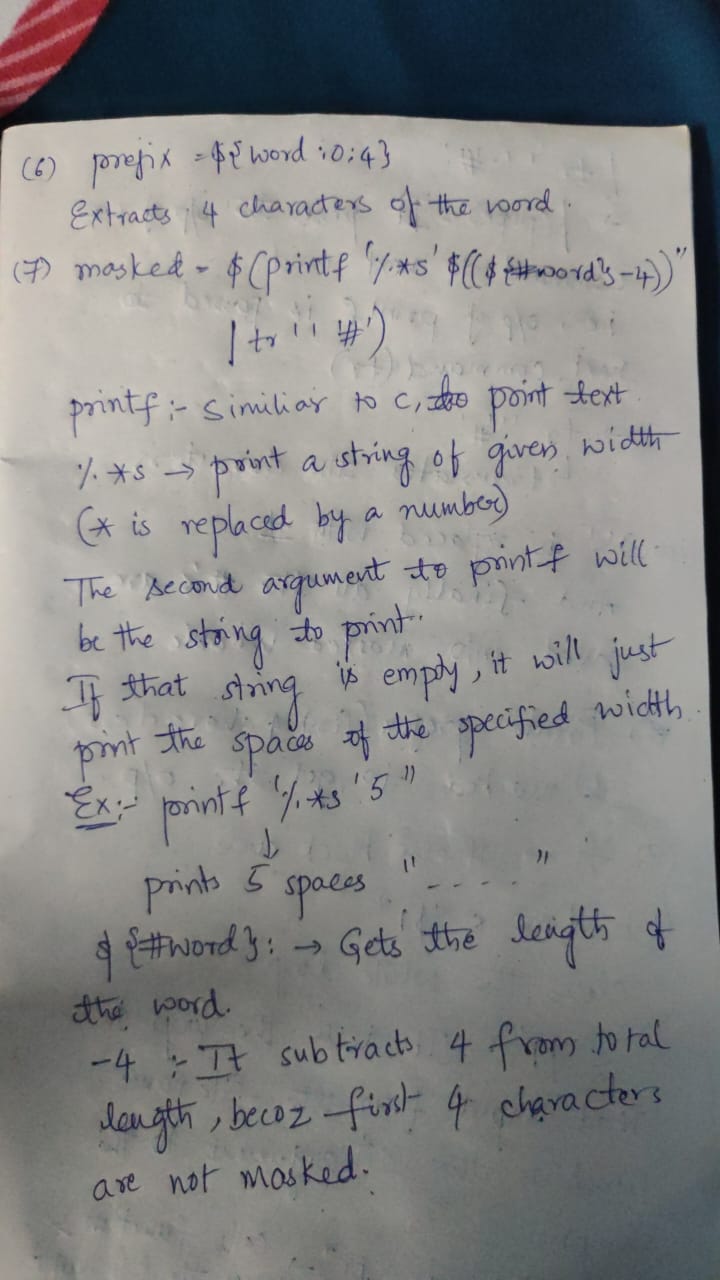 (6) prefix = ${word:0:4}
Extracts 4 characters of the word.
(7) masked = $(printf '%*s' $((${#word}-4))"
| tr ' ' '#')
printf :- Similiar to C, to print text
%*s → print a string of given width
(* is replaced by a number)
The second argument to printf will
be the string to print.
If that string is empty, it will just
print the spaces of the specified width.
Ex:- printf '%*s' 5 "
↓
prints 5 spaces " - . . . . "
${#word}: → Gets the length of
the word.
-4 :- It subtracts 4 from total
length, becoz first 4 characters
are not masked.